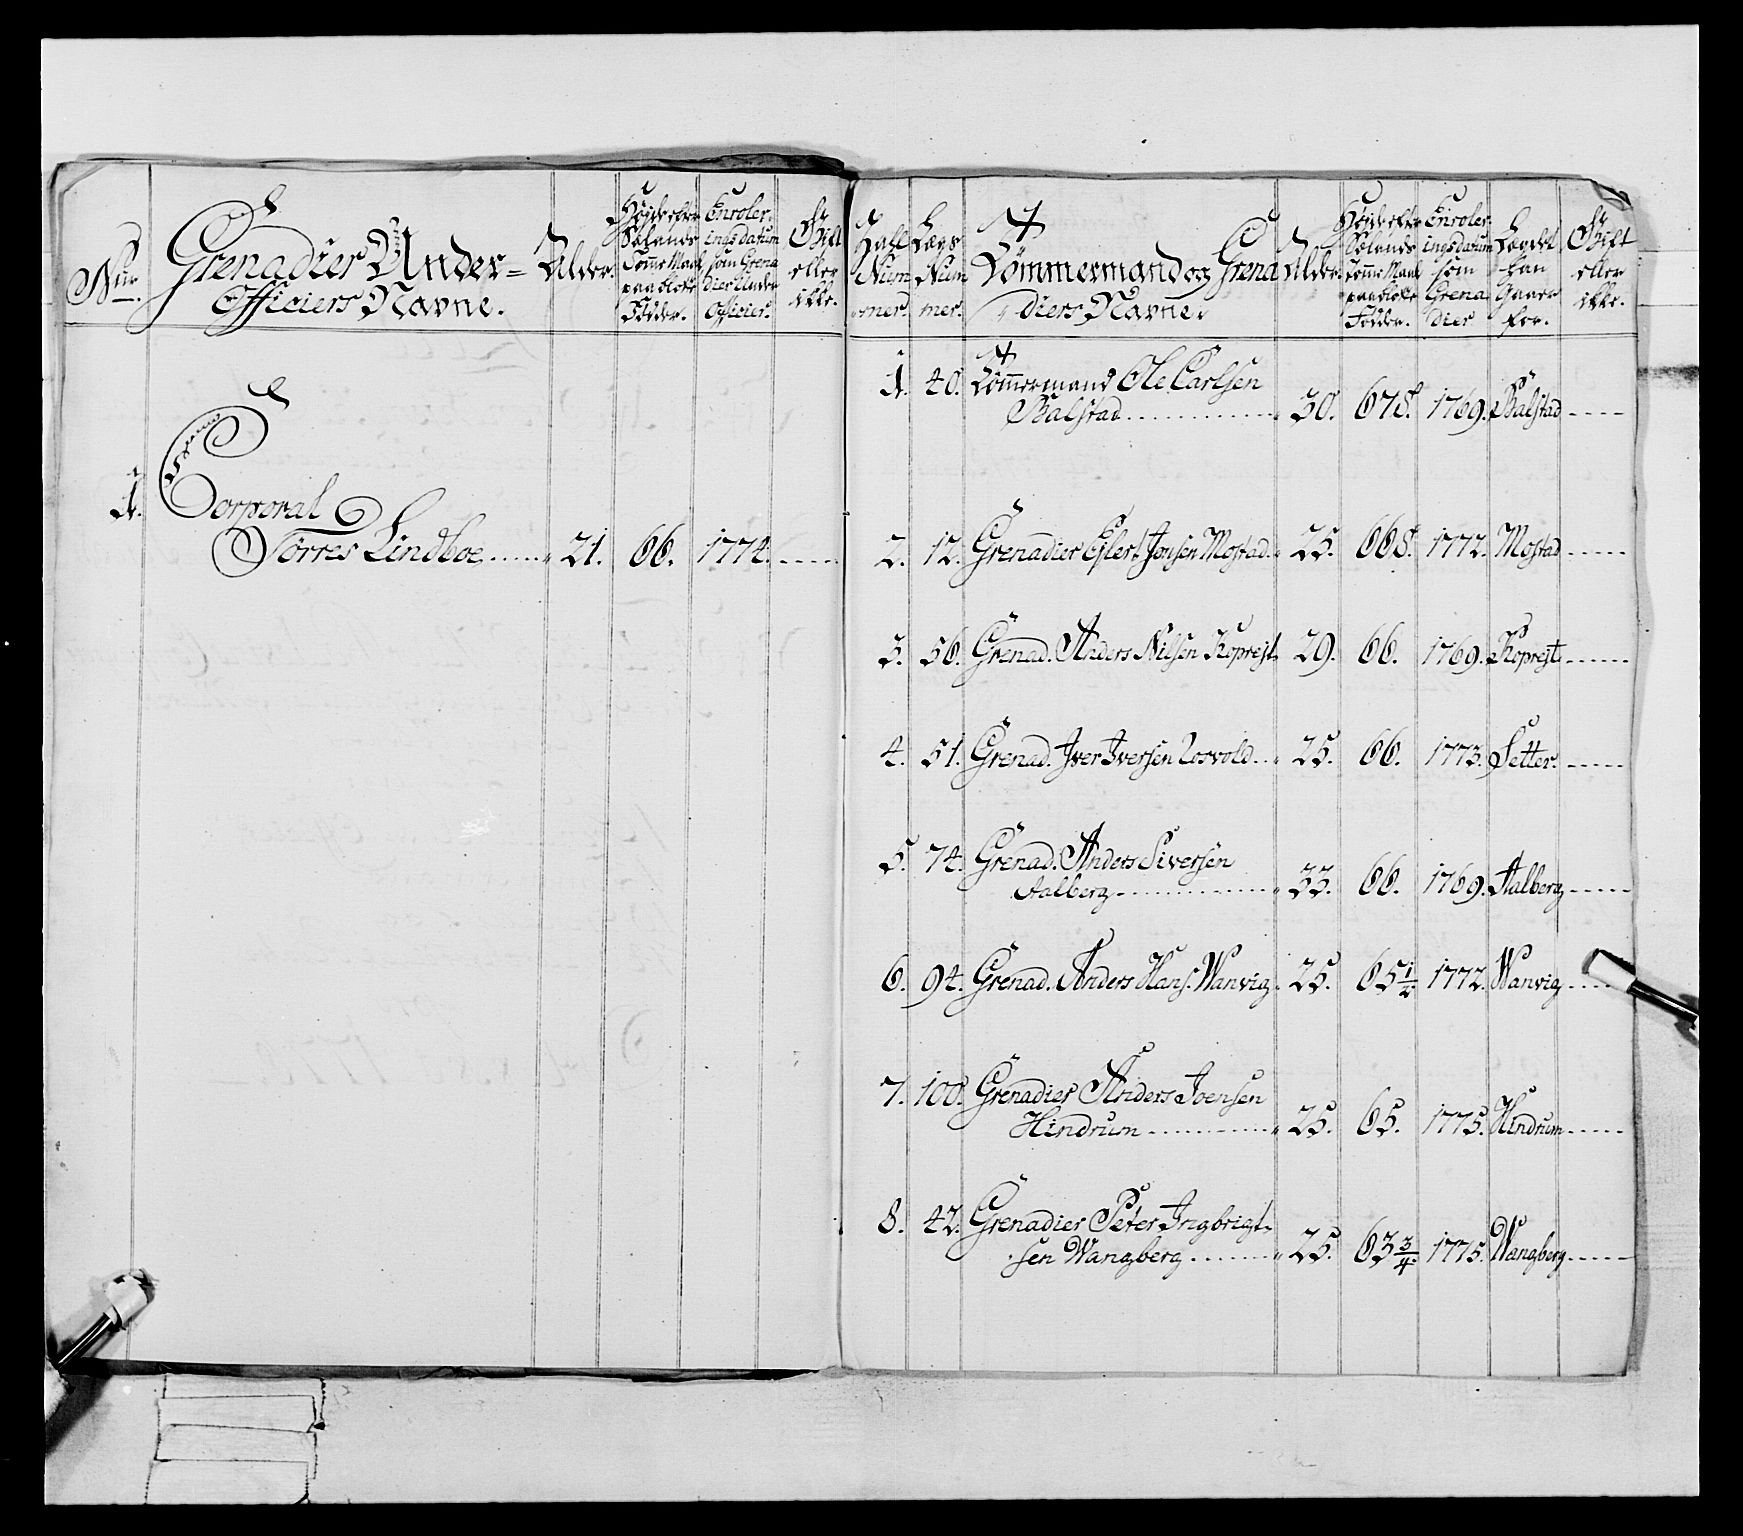 Nur.
Grenadier Under=
Officiers Navne.
Alder.
Høyde efter
Sælands
Tomme Maal
paa blotte
Fødder.
Enroler-
ings datum
som Grena
dier Under
Officier.
Gift
eller
ikke.
1. Corporal
Torres Lindboe...... 21. 66. 1774. .....
Tall
Num
mer.
Lægs
Num
mer.
Tømmermand og Grena
diers Navne.
Alder.
Høyde efter
Sælands
Tomme Maal
paa blotte
Fødder.
Enroler-
ings datum
som
Grena
dier
Lægdet
han
Gaaer
for.
Gift
eller
ikke.
1. 40. Tømmermand Ole Carlsen
Balstad............. 30. 67 1769. Balstad .....
2. 12. Grenadier Eslert Jonsen Mostad. 25. 66 1772. Mostad .....
3. 56. Grenad. Anders Nilsen Koprest 29. 66. 1769. Koprest .....
4. 51. Grenad. Iver Iversen Losvold... 25. 66. 1773. Setter. .....
5. 74. Grenad. Anders Siversen
Aalberg............. 33. 66. 1769. Aalberg .....
6. 94. Grenad. Anders Hans. Wanvig 25. 65 1/2 1772. Wanvig .....
7. 100. Grenadier Anders Joensen
Hindrum ............. 25. 65. 1775. Hindrum .....
8. 42. Grenadier Peter Ingbrigt-
sen Wangberg ....... 25. 63 3/4 1775. Wangberg .....